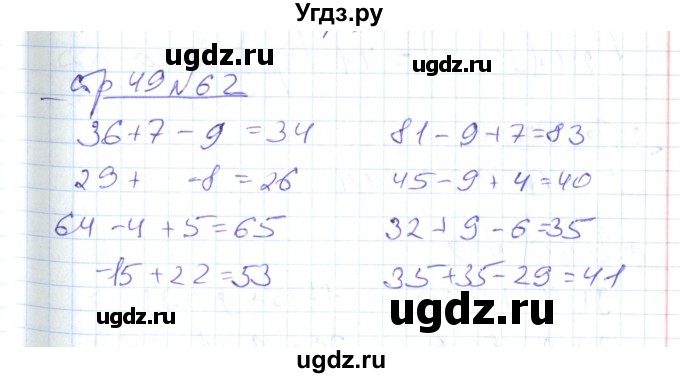 Угдз.ру
ugdz.ru ugdz.ru
стр 49 № 62
36+7-9=34 81-9+7=83
ugdz.ru ugdz.ru
29+ -8=26 45-9+4=40
64-4+5=65 32+9-6=35
-15+22=53 35+35-29=41
ugdz.ru ugdz.ru
ugdz.ru